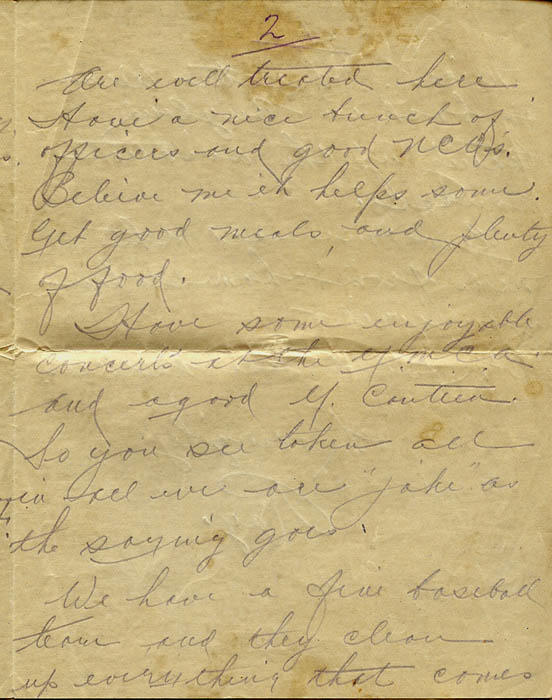 2
Are well treated here.
Have a nice bunch of
officers and good NCO's.
Believe me it helps some.
Get good meals, and plenty
of food.
Have some enjoyable
concerts at the Y.M.C.A.
and a good Y. Canteen.
So you see taken all
in all we are "jake" as
the saying goes.
We have a fine baseball
team and they clean
up everything that comes